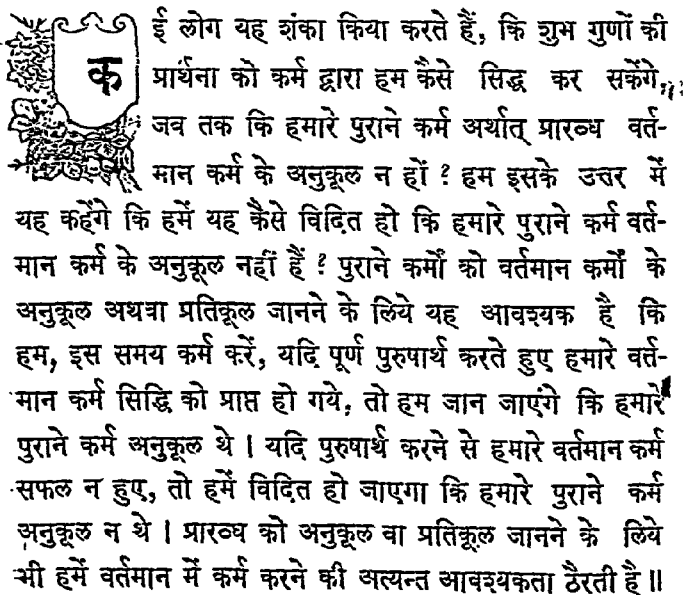 कई लोग यह शंका किया करते हैं, कि शुभ गुणों की
प्रार्थना को कर्म द्वारा हम कैसे सिद्ध कर सकेंगे,
जव तक कि हमारे पुराने कर्म अर्थात् प्रारव्ध वर्त-
मान कर्म के अनुकूल न हों ? हम इसके उत्तर में
यह कहेंगे कि हमें यह कैसे विदित हो कि हमारे पुराने कर्म वर्त-
मान कर्म के अनुकूल नहीं हैं ? पुराने कर्मों को वर्तमान कर्मों के
अनुकूल अथवा प्रतिकूल जानने के लिये यह आवश्यक है कि
हम, इस समय कर्म करें, यदि पूर्ण पुरुषार्थ करते हुए हमारे वर्त-
मान कर्म सिद्धि को प्राप्त हो गये, तो हम जान जाएंगे कि हमारे
पुराने कर्म अनुकूल थे । यदि पुरुषार्थ करने से हमारे वर्तमान कर्म
सफल न हुए, तो हमें विदित हो जाएगा कि हमारे पुराने कर्म
अनुकूल न थे । प्रारव्ध को अनुकूल वा प्रतिकूल जानने के लिये
भी हमें वर्तमान में कर्म करने की अत्यन्त आवश्यकता ठैरती है ॥